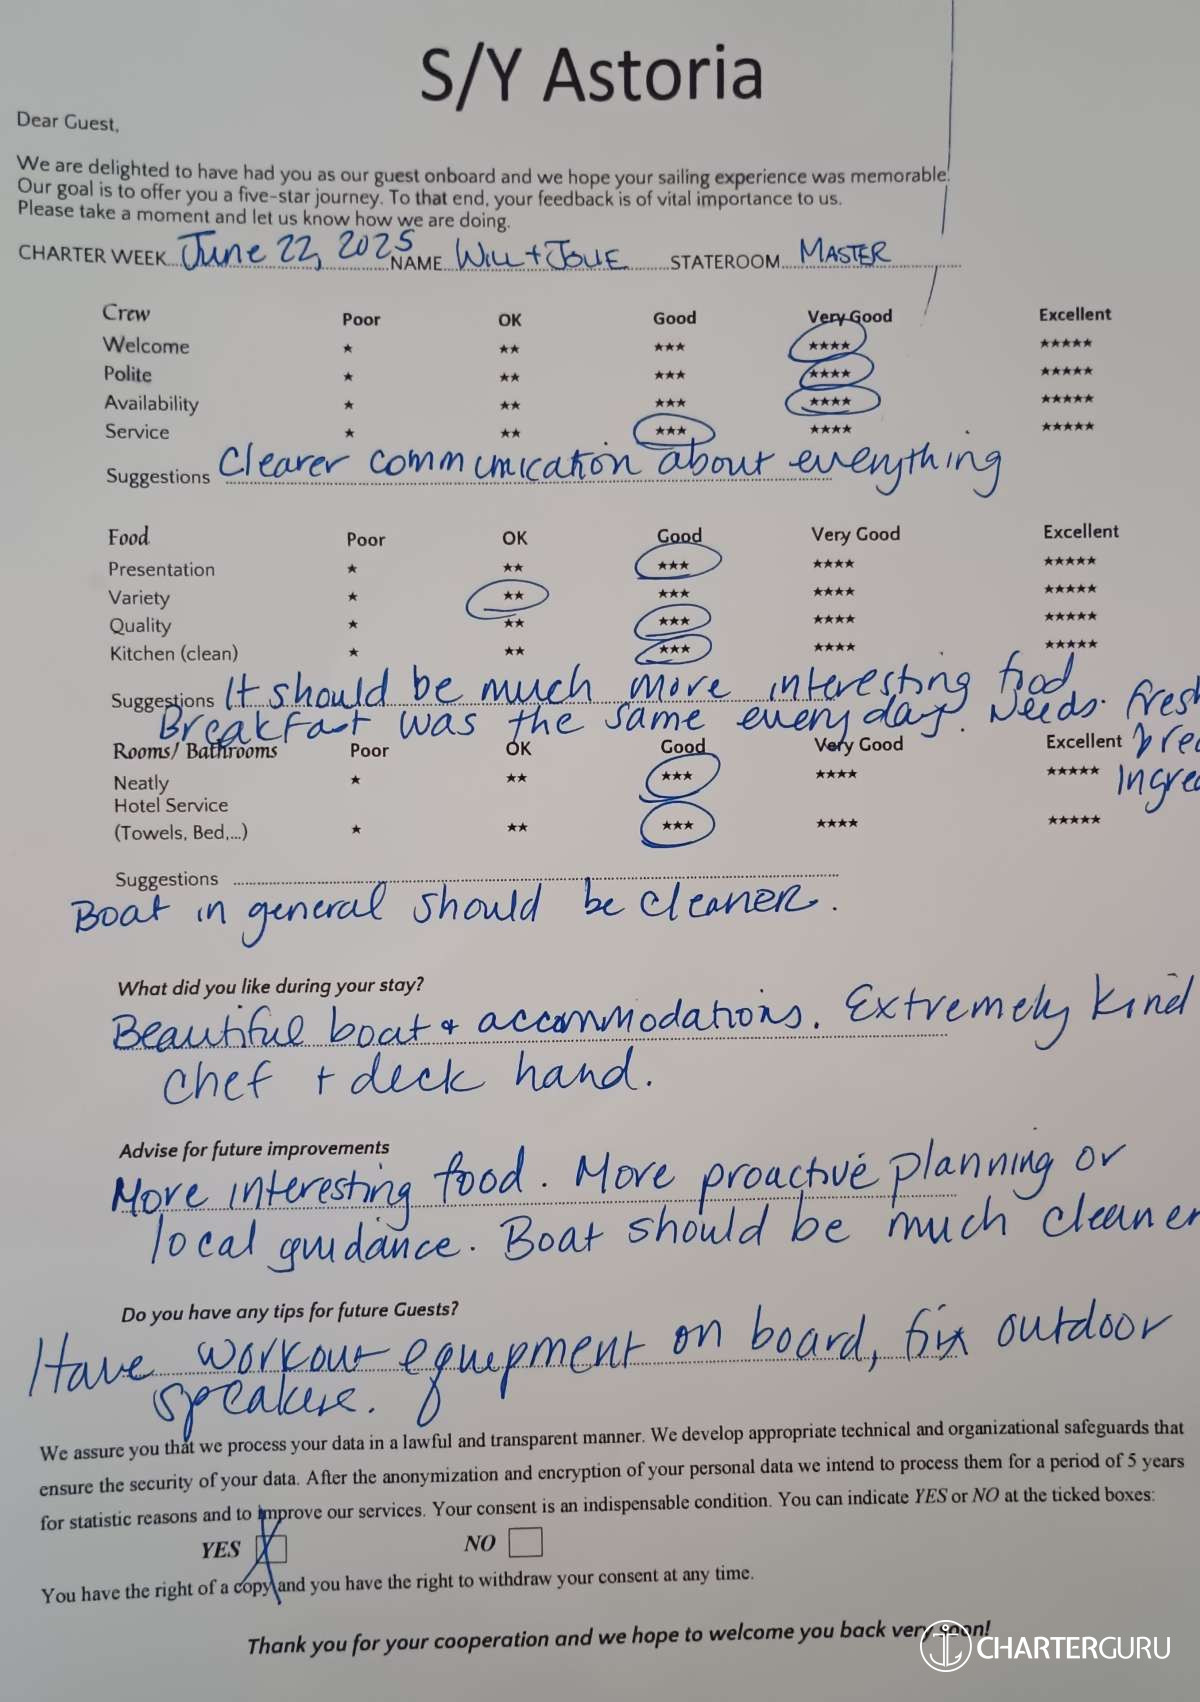 S/Y Astoria
Dear Guest,
We are delighted to have had you as our guest onboard and we hope your sailing experience was memorable!
Our goal is to offer you a five-star journey. To that end, your feedback is of vital importance to us.
Please take a moment and let us know how we are doing.
CHARTER WEEK June 22, 2025 NAME Will + Jolie STATEROOM MASTER
Crew Poor OK Good Very Good Excellent
Welcome ★ ★★ ★★★ ★★★★ ★★★★★
Polite ★ ★★ ★★★ ★★★★ ★★★★★
Availability ★ ★★ ★★★ ★★★★ ★★★★★
Service ★ ★★ ★★★ ★★★★ ★★★★★
Suggestions Clearer communication about everything
Food Poor OK Good Very Good Excellent
Presentation ★ ★★ ★★★ ★★★★ ★★★★★
Variety ★ ★★ ★★★ ★★★★ ★★★★★
Quality ★ ★★ ★★★ ★★★★ ★★★★★
Kitchen (clean) ★ ★★ ★★★ ★★★★ ★★★★★
Suggestions It should be much more interesting food
Breakfast was the same every day. Needs fresh
Rooms/ Bathrooms Poor OK Good Very Good Excellent
Neatly ★ ★★ ★★★ ★★★★ ★★★★★
Hotel Service
(Towels, Bed,...) ★ ★★ ★★★ ★★★★ ★★★★★
Suggestions
Boat in general should be cleaner.
What did you like during your stay?
Beautiful boat + accommodations. Extremely kind
chef + deck hand.
Advise for future improvements
More interesting food. More proactive planning or
local guidance. Boat should be much cleaner
Do you have any tips for future Guests?
Have workout equipment on board, fix outdoor
We assure you that we process your data in a lawful and transparent manner. We develop appropriate technical and organizational safeguards that
ensure the security of your data. After the anonymization and encryption of your personal data we intend to process them for a period of 5 years
for statistic reasons and to improve our services. Your consent is an indispensable condition. You can indicate YES or NO at the ticked boxes:
YES NO
You have the right of a copy and you have the right to withdraw your consent at any time.
Thank you for your cooperation and we hope to welcome you back very soon!
CHARTERGURU